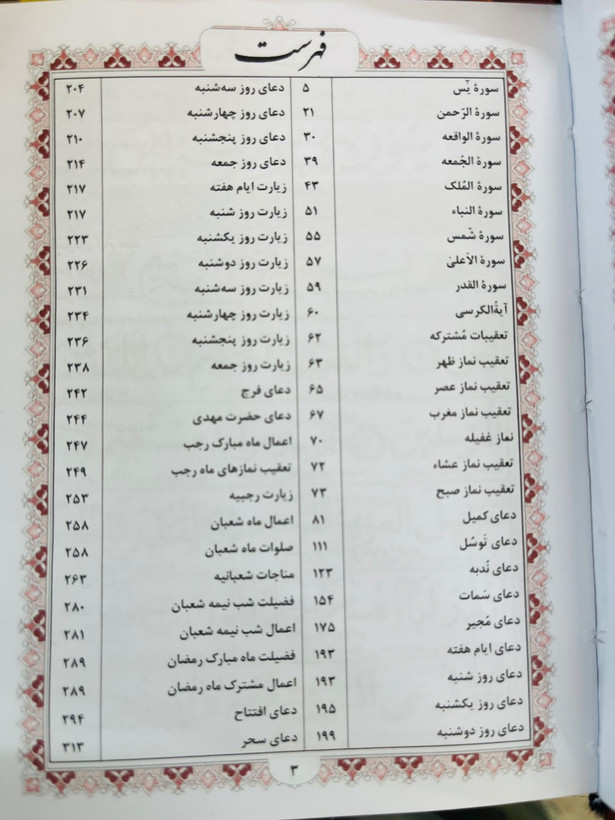 فهرست
سورهٔ یٓس ۵ دعای روز سه‌شنبه ۲۰۴
سورهٔ الرّحمن ۲۱ دعای روز چهارشنبه ۲۰۷
سورهٔ الواقعه ۳۰ دعای روز پنجشنبه ۲۱۰
سورهٔ الجُمعه ۳۹ دعای روز جمعه ۲۱۴
سورهٔ المُلک ۴۳ زیارت ایام هفته ۲۱۷
سورهٔ النباء ۵۱ زیارت روز شنبه ۲۱۷
سورهٔ شَمس ۵۵ زیارت روز یکشنبه ۲۲۳
سورهٔ الاَعلیٰ ۵۷ زیارت روز دوشنبه ۲۲۶
سورهٔ القدر ۵۹ زیارت روز سه‌شنبه ۲۳۱
آیةُالکرسی ۶۰ زیارت روز چهارشنبه ۲۳۴
تعقیبات مُشترکه ۶۲ زیارت روز پنجشنبه ۲۳۶
تعقیب نماز ظهر ۶۳ زیارت روز جمعه ۲۳۸
تعقیب نماز عصر ۶۵ دعای فرج ۲۴۲
تعقیب نماز مغرب ۶۷ دعای حضرت مهدی ۲۴۴
نماز غفیله ۷۰ اعمال ماه مبارک رجب ۲۴۷
تعقیب نماز عشاء ۷۲ تعقیب نمازهای ماه رجب ۲۴۹
تعقیب نماز صبح ۷۳ زیارت رجبیه ۲۵۳
دعای کمیل ۸۱ اعمال ماه شعبان ۲۵۸
دعای تَوسُل ۱۱۱ صلوات ماه شعبان ۲۵۸
دعای نُدبه ۱۲۳ مناجات شعبانیه ۲۶۳
دعای سَمات ۱۵۴ فضیلت شب نیمه شعبان ۲۸۰
دعای مُجیر ۱۷۵ اعمال شب نیمه شعبان ۲۸۱
دعای ایام هفته ۱۹۳ فضیلت ماه مبارک رمضان ۲۸۹
دعای روز شنبه ۱۹۳ اعمال مشترک ماه رمضان ۲۸۹
دعای روز یکشنبه ۱۹۵ دعای افتتاح ۲۹۴
دعای روز دوشنبه ۱۹۹ دعای سحر ۳۱۳
۳